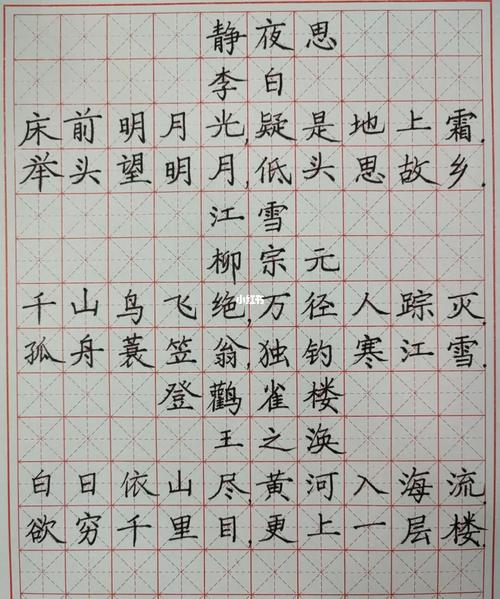 静夜思
李白
床前明月光,疑是地上霜.
举头望明月,低头思故乡.
江雪
柳宗元
千山鸟飞绝,万径人踪灭.
小红书
孤舟蓑笠翁,独钓寒江雪.
登鹳雀楼
王之涣
白日依山尽,黄河入海流.
欲穷千里目,更上一层楼.